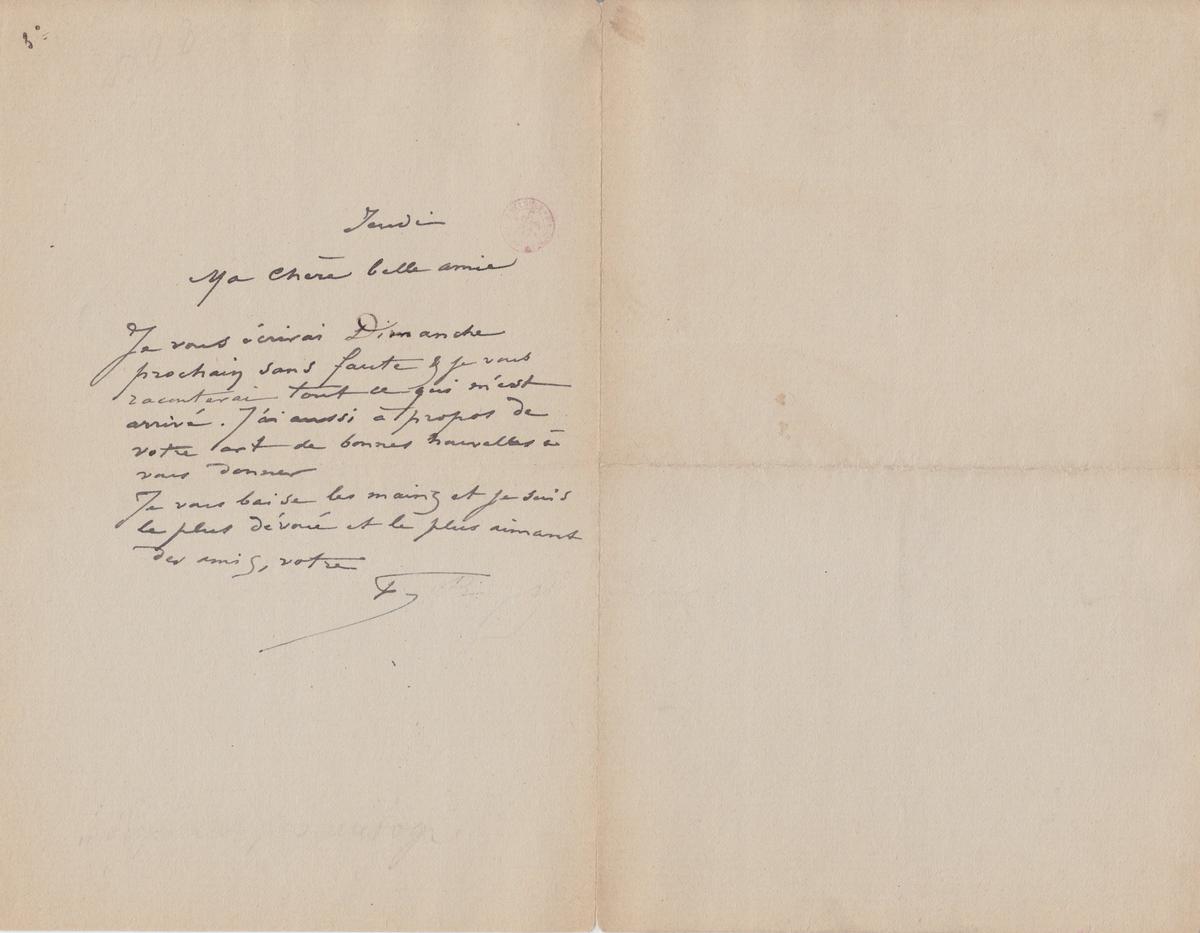 Jeudi
Ma chère belle amie
Je vous écrirai Dimanche
prochain sans faute & je vous
raconterai tout ce qui m'est
arrivé. J'ai aussi à propos de
votre art de bonnes nouvelles à
vous donner
Je vous baise les mains et je suis
le plus dévoué et le plus aimant
des amis, votre